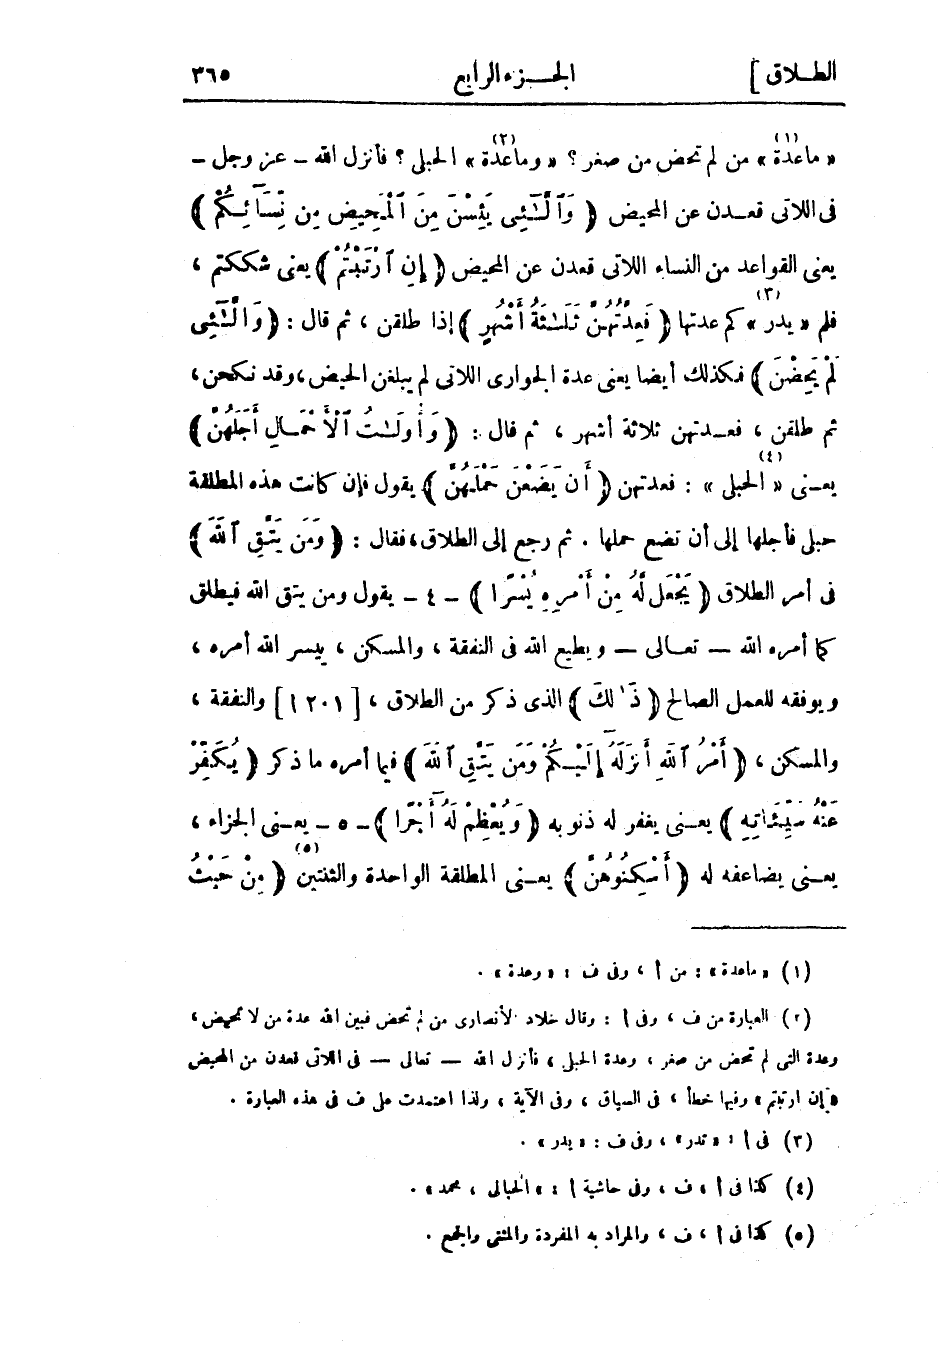 الطلاق ] الجزء الرابع ٣٦٥
« ماعدة (١) » من لم تحض من صغر ؟ « وماعدة (٢) » الحبلى ؟ فأنزل الله – عز وجل –
فى اللاتى قعدن عن المحيض ﴿ وَٱلَّـٰۤـِٔى يَئِسْنَ مِنَ ٱلْمَحِيضِ مِن نِّسَآئِكُمْ ﴾
يعنى القواعد من النساء اللاتى قعدن عن المحيض ﴿ إِنِ ٱرْتَبْتُمْ ﴾ يعنى شككتم ،
فلم « يدر (٣) » كم عدتها ﴿ فَعِدَّتُهُنَّ ثَلَـٰثَةُ أَشْهُرٍ ﴾ إذا طلقن ، ثم قال : ﴿ وَٱلَّـٰۤـِٔى
لَمْ يَحِضْنَ ﴾ فكذلك أيضا يعنى عدة الجوارى اللاتى لم يبلغن الحيض ، وقد نكحن ،
ثم طلقن ، فعدتهن ثلاثة أشهر ، ثم قال : ﴿ وَأُولَـٰتُ ٱلْأَحْمَـالِ أَجَلُهُنَّ ﴾
يعنى « الحبلى (٤) » : فعدتهن ﴿ أَن يَضَعْنَ حَمْلَهُنَّ ﴾ يقول فإن كانت هذه المطلقة
حبلى فأجلها إلى أن تضع حملها . ثم رجع إلى الطلاق ، فقال : ﴿ وَمَن يَتَّقِ ٱللَّهَ ﴾
فى أمر الطلاق ﴿ يَجْعَل لَّهُ مِنْ أَمْرِهِ يُسْرًا ﴾ – ٤ – يقول ومن يتق الله فيطلق
كما أمره الله – تعالى – ويطيع الله فى النفقة ، والمسكن ، ييسر الله أمره ،
ويوفقه للعمل الصالح ﴿ ذَٰلِكَ ﴾ الذى ذكر من الطلاق ، [ ٢٠١ أ ] والنفقة ،
والمسكن ، ﴿ أَمْرُ ٱللَّهِ أَنزَلَهُۤ إِلَيْكُمْ وَمَن يَتَّقِ ٱللَّهَ ﴾ فيما أمره ما ذكر ﴿ يُكَفِّرْ
عَنْهُ سَيِّـَٔاتِهِ ﴾ يعنى يغفر له ذنوبه ﴿ وَيُعْظِمْ لَهُۤ أَجْرًا ﴾ – ٥ – يعنى الجزاء ،
يعنى يضاعفه له ﴿ أَسْكِنُوهُنَّ ﴾ يعنى المطلقة الواحدة والثنتين (٥) ﴿ مِنْ حَيْثُ
(١) « ماعدة » : من أ ، وفى ف : « وعدة » .
(٢) العبارة من ف ، وفى أ : وقال خلاد الأنصارى من لم تحض فبين الله عدة من لا تحيض ،
وعدة التى لم تحض من صغر ، وعدة الحبلى ، فأنزل الله – تعالى – فى اللاتى قعدن من المحيض
« إن ارتبتم » وفيها خطأ ، فى السياق ، وفى الآية ، ولذا اعتمدت على ف فى هذه العبارة .
(٣) فى أ : « تدر » ، وفى ف : « يدر » .
(٤) كذا فى أ ، ف ، وفى حاشية أ : « الحبالى ، محمد » .
(٥) كذا فى أ ، ف ، والمراد به المفردة والمثنى والجمع .